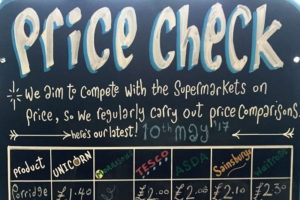 Price Check
We aim to Compete with the Supermarkets on
Price, so we regularly carry out price Comparisons.
here's our latest! 10th may '17
product UNICORN TESCO ASDA Sainsburys Waitrose
Porridge £1.40 £2.00 £2.00 £2.10 £2.30